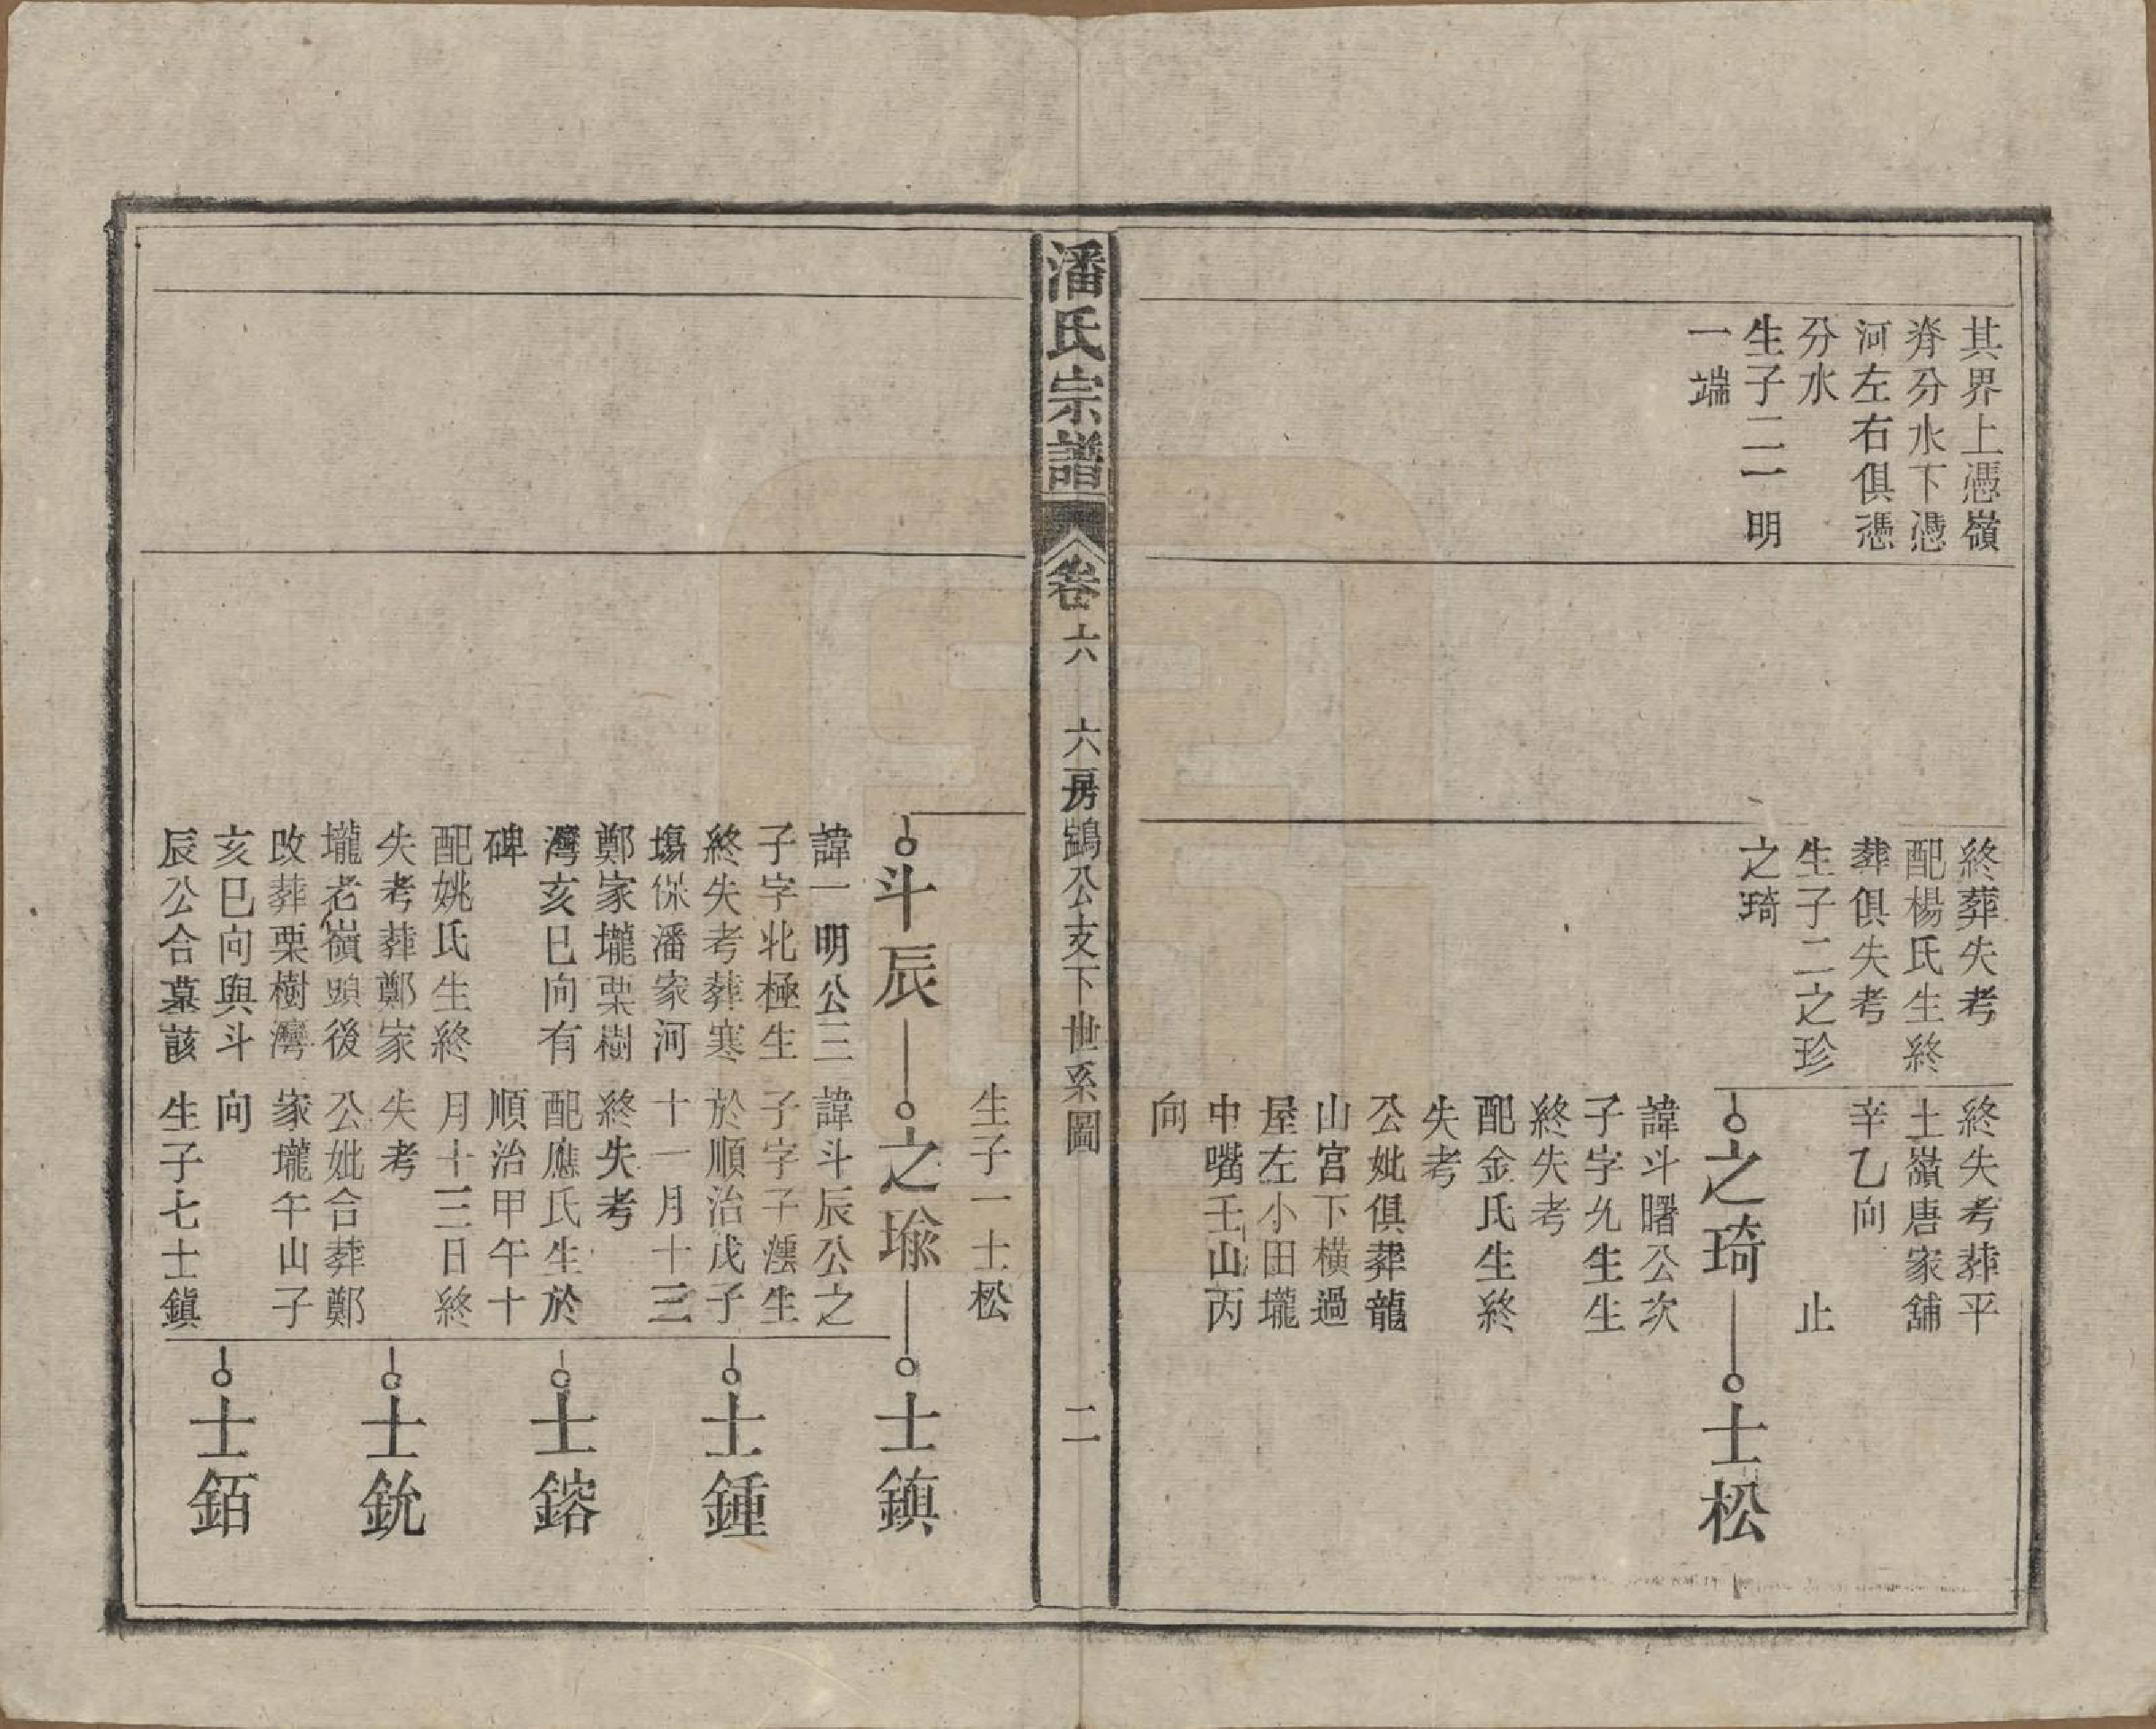 其界上憑嶺
脊分水下憑
河左右俱憑
分水
生子二一明
一端
終葬失考
配楊氏生終
葬俱失考
生子二之珍
之琦
終失考葬平
土嶺唐家舖
辛乙向
止
之琦
士松
諱斗曙公次
子字允生生
終失考
配金氏生終
失考
公妣俱葬龍
山宮下橫過
屋左小田壠
中嘴壬山丙
向
潘氏宗譜
卷六
六房鷀公支下世系圖
二
生子一士松
斗辰
之瑜
士鎮
諱一明公三
子字北極生
終失考葬寒
塲保潘家河
鄭家壠栗樹
灣亥巳向有
碑
配姚氏生終
失考葬鄭家
壠老嶺頭後
改葬栗樹灣
亥巳向與斗
辰公合墓該
諱斗辰公之
子字子濮生
於順治戊子
十一月十三
終失考
配應氏生於
順治甲午十
月十三日終
失考
公妣合葬鄭
家壠午山子
向
生子七士鎮
士鍾
士鎔
士銃
士銆